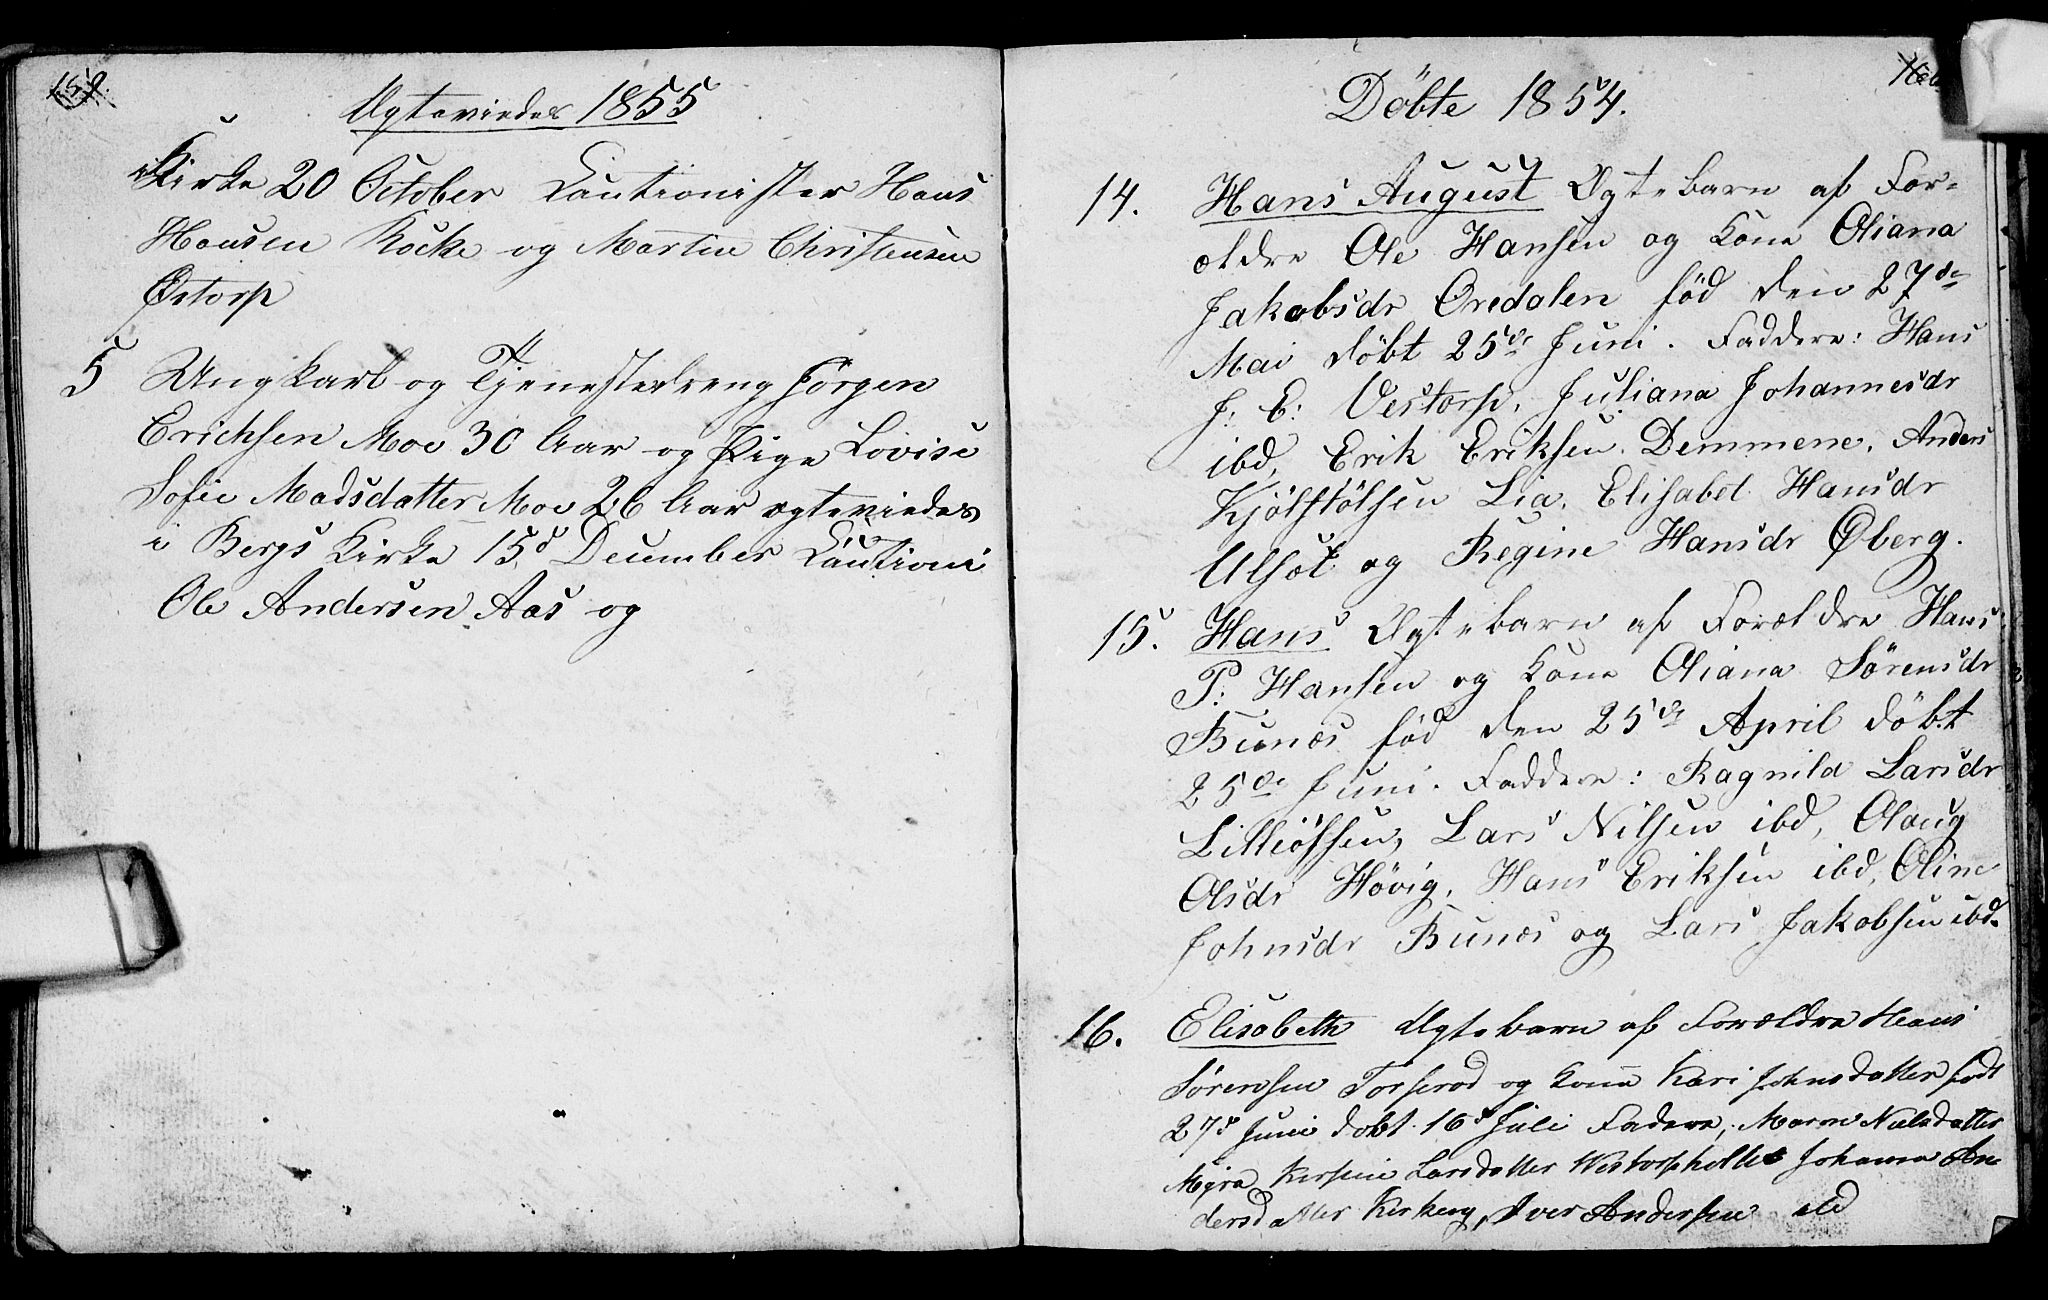 159.
Ægteviedes 1855
Kirke 20 October Cautionister Hans
Hansen Kocke og Martin Christensen
Østorp
5 Ungkarl og Tjenestedreng Jørgen
Erichsen Moe 30 Aar og Pige Lovise
Sofie Madsdatter Moe 26 Aar ægteviedes
i Bergs Kirke 15d December Cautioni
Ole Andersen Aas og
Döbte 1854.
14. Hans August Ægtebarn af For-
ældre Ole Hansen og Kone Oliana
Jakobsdr Oredalen föd den 27de
Mai döbt 25de Juni. Faddere: Hans
J: E: Vestorp, Juliana Johannesdr
ibd, Erik Eriksen Demmene, Anders
Kjölstölsen Lia, Elisabet Hansdr
Ulsöt og Regine Hansdr Öberg.
15. Hans Ægtebarn af Forældre Hans
P: Hansen og Kone Oliana Sörensdr
Bunæs föd den 25de April döbt
25de Juni. Faddere: Ragnild Larsdr
Lars Nilsen ibd, Olaug
Olsdr Hövig, Hans Eriksen ibd, Oline
Johnsdr Bunæs og Lars Jakobsen ibd.
16. Elisabeth Ægtebarn af Forældre Hans
Sörensen Torperød og Kone Kari Johnsdatter födt
27d Juni döbt 16d Juli Fadere, Maren Nielsdatter
Myra Larsdatter Johanna An-
dersdatter Kirkeng, Iver Andersen